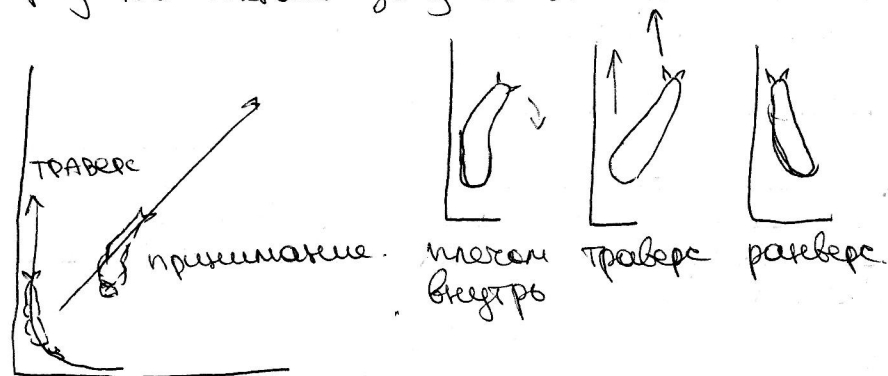 ТРАВЕРС
принимание.
плечом
внутрь
траверс
ранверс.